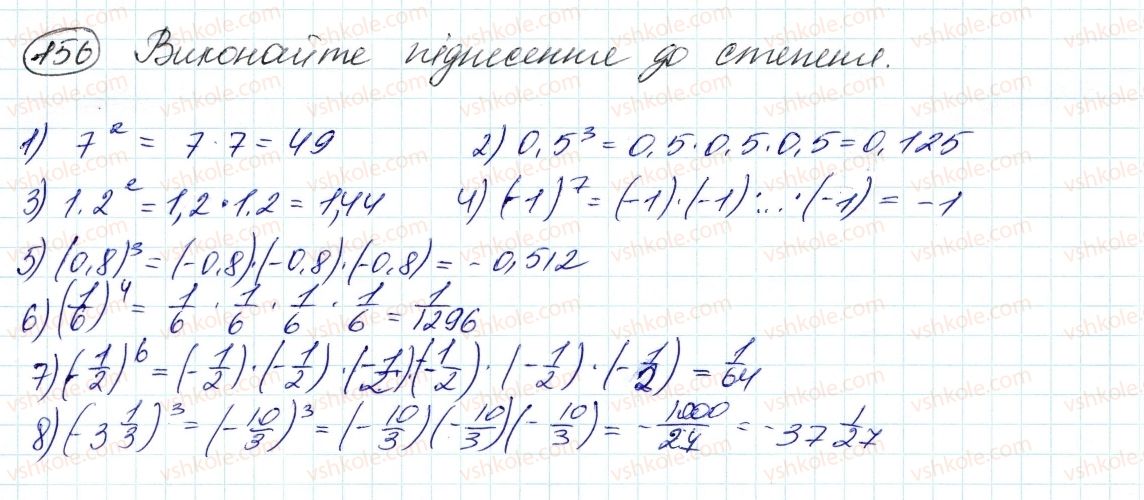 156 Виконайте піднесення до степеня.
1) 7² = 7 · 7 = 49 2) 0,5³ = 0,5 · 0,5 · 0,5 = 0,125
3) 1.2² = 1,2 · 1.2 = 1,44 4) (-1)⁷ = (-1) · (-1) · ... · (-1) = -1
5) (0,8)³ = (-0,8) · (-0,8) · (-0,8) = -0,512
6) (1/6)⁴ = 1/6 · 1/6 · 1/6 · 1/6 = 1/1296
7) (-1/2)⁶ = (-1/2) · (-1/2) · (-1/2) · (-1/2) · (-1/2) · (-1/2) = 1/64
8) (-3 1/3)³ = (-10/3)³ = (-10/3)(-10/3)(-10/3) = -1000/27 = -37 1/27
vshkole.com